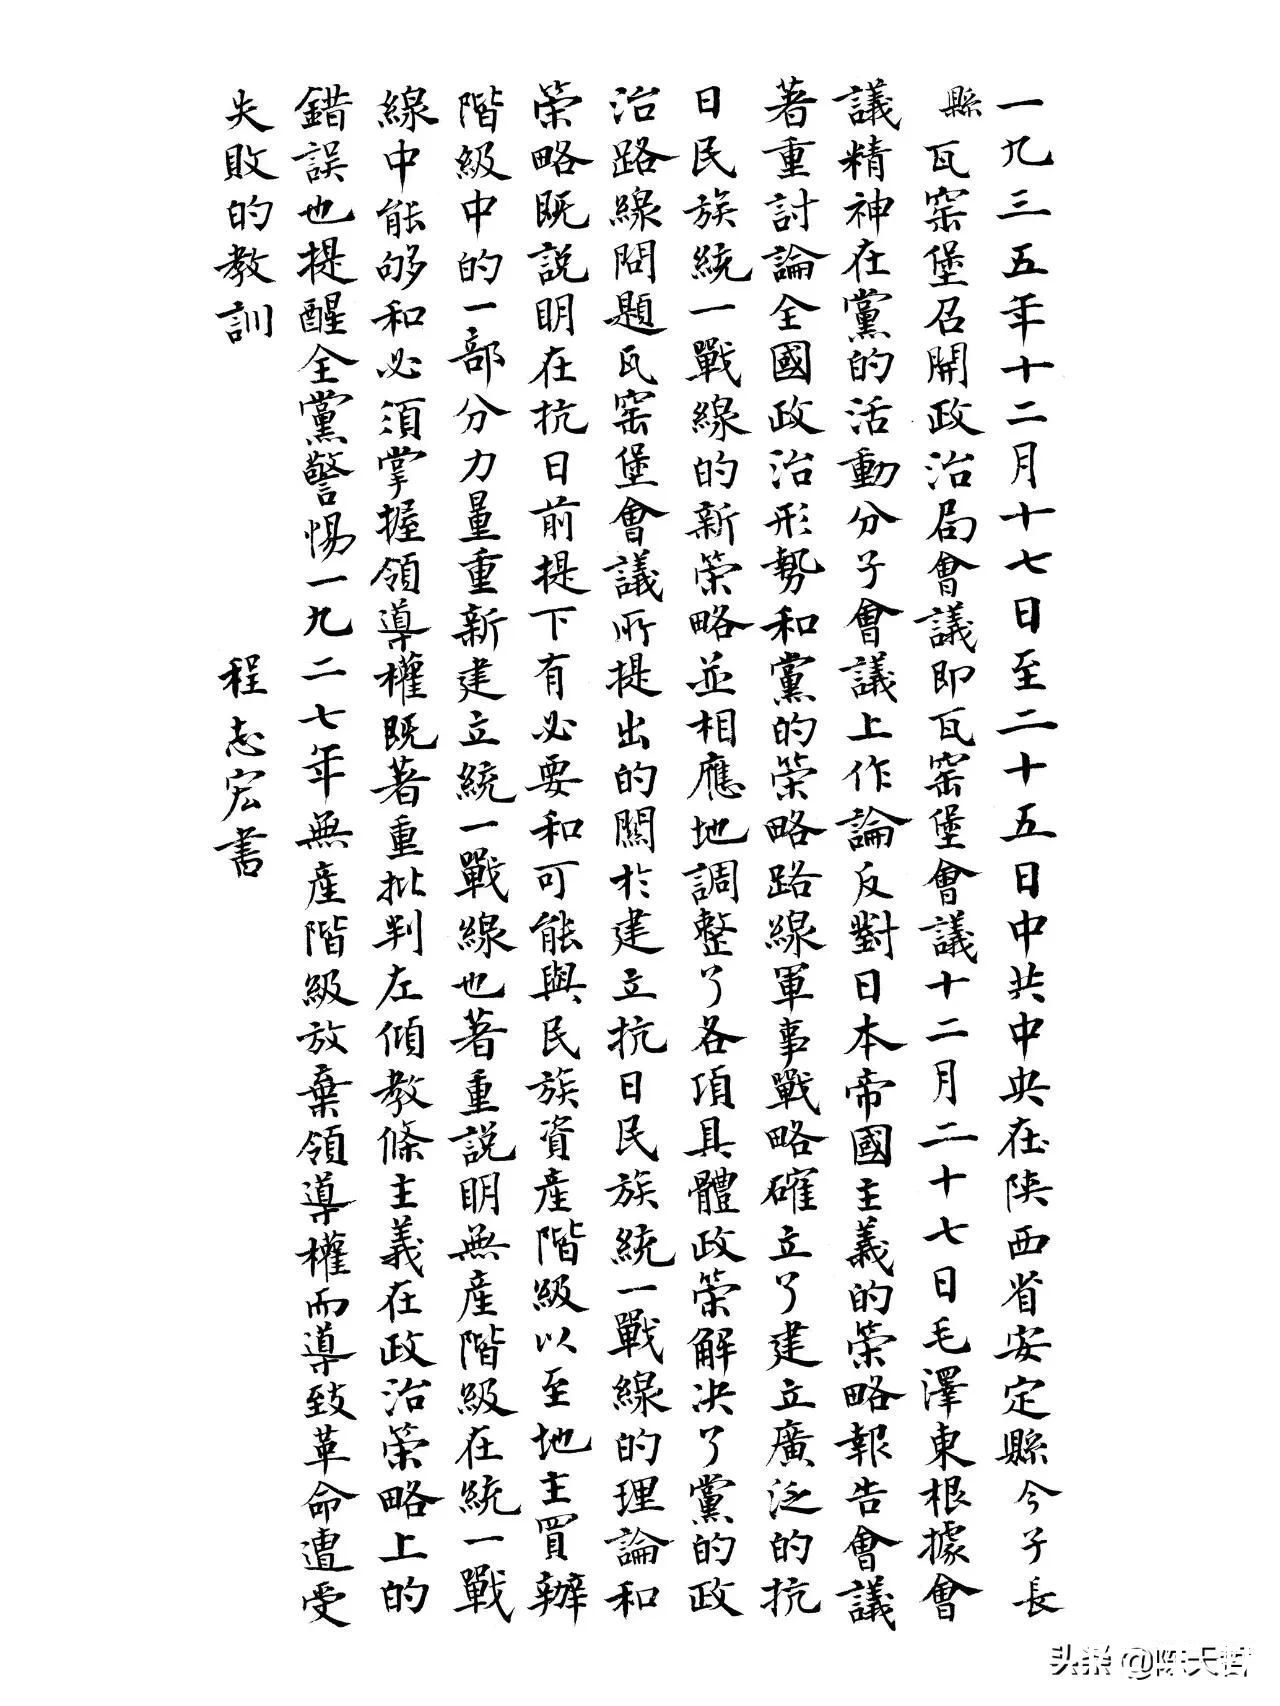 一九三五年十二月十七日至二十五日中共中央在陝西省安定縣今子長
縣瓦窑堡召開政治局會議即瓦窑堡會議十二月二十七日毛澤東根據會
議精神在黨的活動分子會議上作論反對日本帝國主義的策略報告會議
著重討論全國政治形勢和黨的策略路線軍事戰略確立了建立廣泛的抗
日民族統一戰線的新策略並相應地調整了各項具體政策解决了黨的政
治路線問題瓦窑堡會議所提出的關於建立抗日民族統一戰線的理論和
策略既説明在抗日前提下有必要和可能與民族資産階級以至地主買辦
階級中的一部分力量重新建立統一戰線也著重説明無産階級在統一戰
線中能够和必須掌握領導權既著重批判左傾教條主義在政治策略上的
錯誤也提醒全黨警惕一九二七年無産階級放棄領導權而導致革命遭受
失敗的教訓 程志宏書
头条 @陈天哲